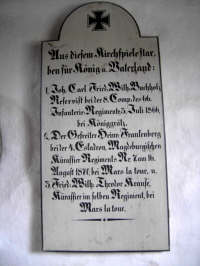 Aus diesem Kirchspiele star,
ben für König u. Vaterland:
1. Joh. Carl Fried. Wilh. Buchholz,
Reservist bei der 8. Comp. des 66.
Infanterie-Regiments 3. Juli 1866.
bei Königgrätz,
2. Der Gefreiter Heinr. Frankenberg
bei der 4. Escadron, Magdeburgischen
Kürassier Regiments Nr. 7. am 16.
August 1870. bei Mars-la-tour. u.
3. Fried. Wilh. Theodor Krause,
Kürassier im selben Regiment, bei
Mars la tour.